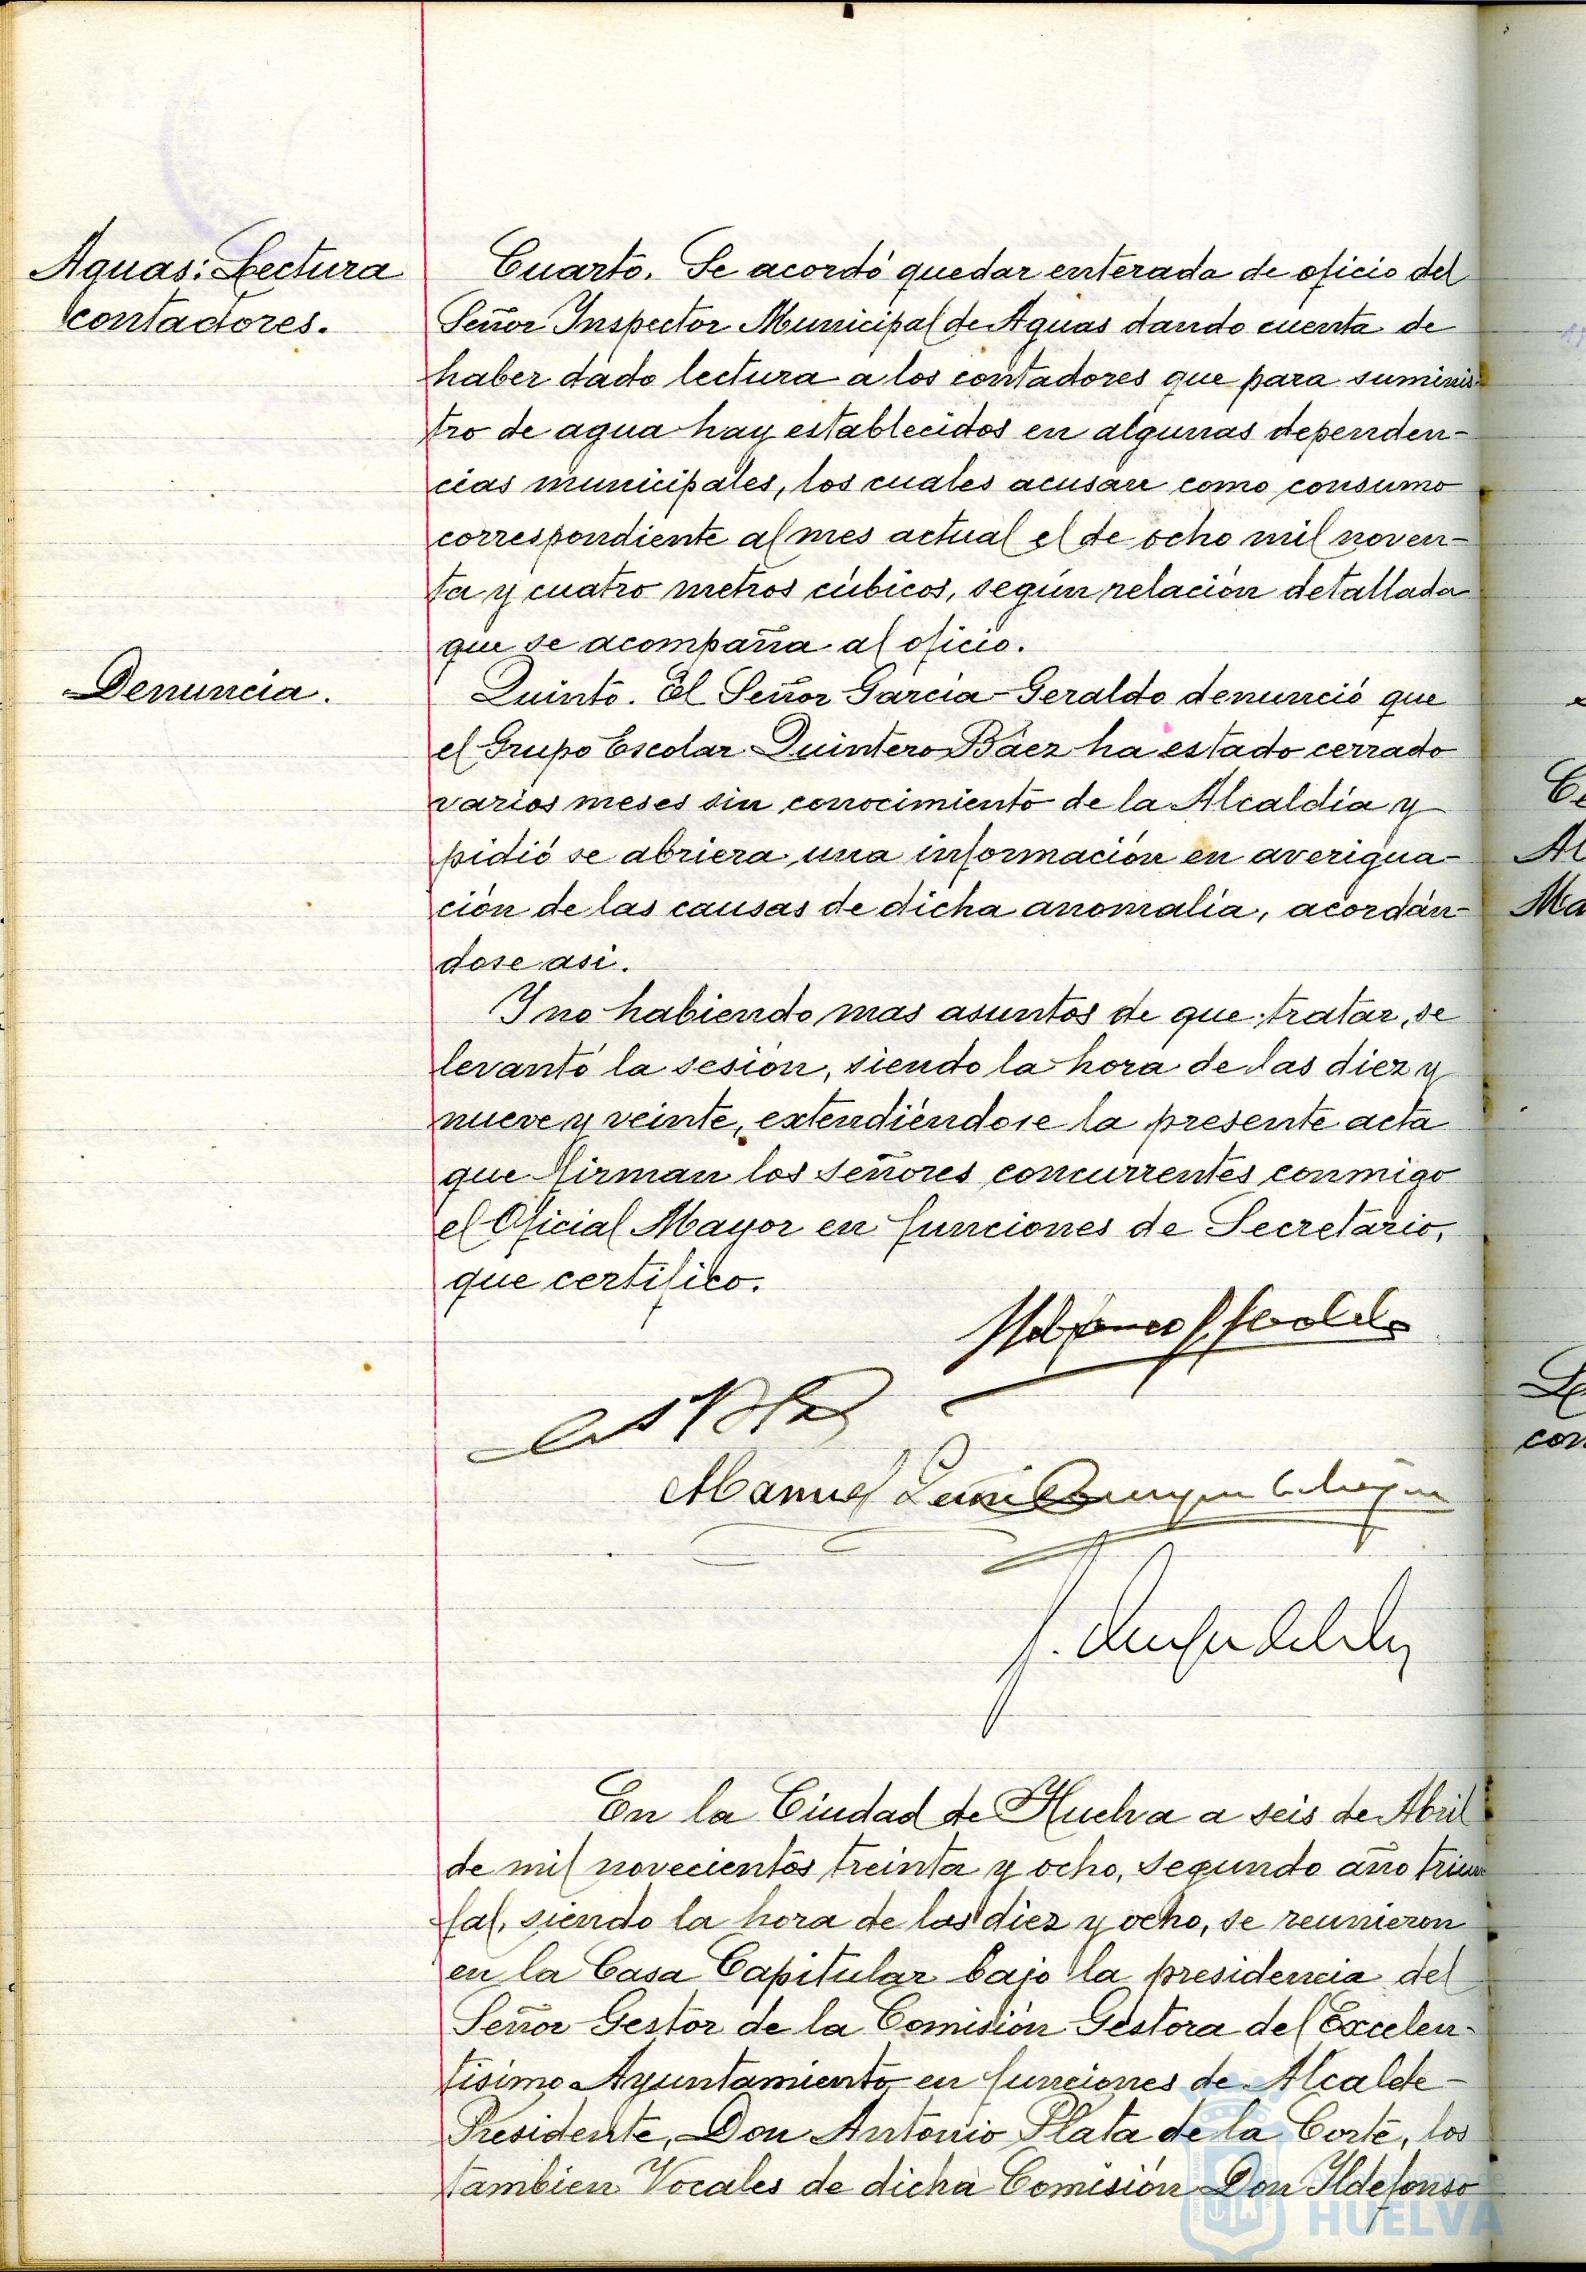 Aguas: Lectura
contadores.
Cuarto. Se acordó quedar enterada de oficio del
Señor Inspector Municipal de Aguas dando cuenta de
haber dado lectura a los contadores que para suminis-
tro de agua hay establecidos en algunas dependen-
cias municipales, los cuales acusan como consumo
correspondiente al mes actual el de ocho mil noven-
ta y cuatro metros cúbicos, según relación detallada
que se acompaña al oficio.
Denuncia.
Quinto. El Señor García-Geraldo denunció que
el Grupo Escolar Quintero Báez ha estado cerrado
varios meses sin conocimiento de la Alcaldía y
pidió se abriera una información en averigua-
ción de las causas de dicha anomalía, acordán-
dose asi.
Y no habiendo mas asuntos de que tratar, se
levantó la sesión, siendo la hora de las diez y
nueve y veinte, extendiéndose la presente acta
que firman los señores concurrentes conmigo
el Oficial Mayor en funciones de Secretario,
que certifico.
Manuel
En la Ciudad de Huelva a seis de Abril
de mil novecientos treinta y ocho, segundo año triun
fal, siendo la hora de las diez y ocho, se reunieron
en la Casa Capitular bajo la presidencia del
Señor Gestor de la Comisión Gestora del Excelen-
tisimo Ayuntamiento en funciones de Alcalde-
Presidente, Don Antonio Plata de la Corte, los
tambien Vocales de dicha Comisión Don Ildefonso
Ayuntamiento de
HUELVA